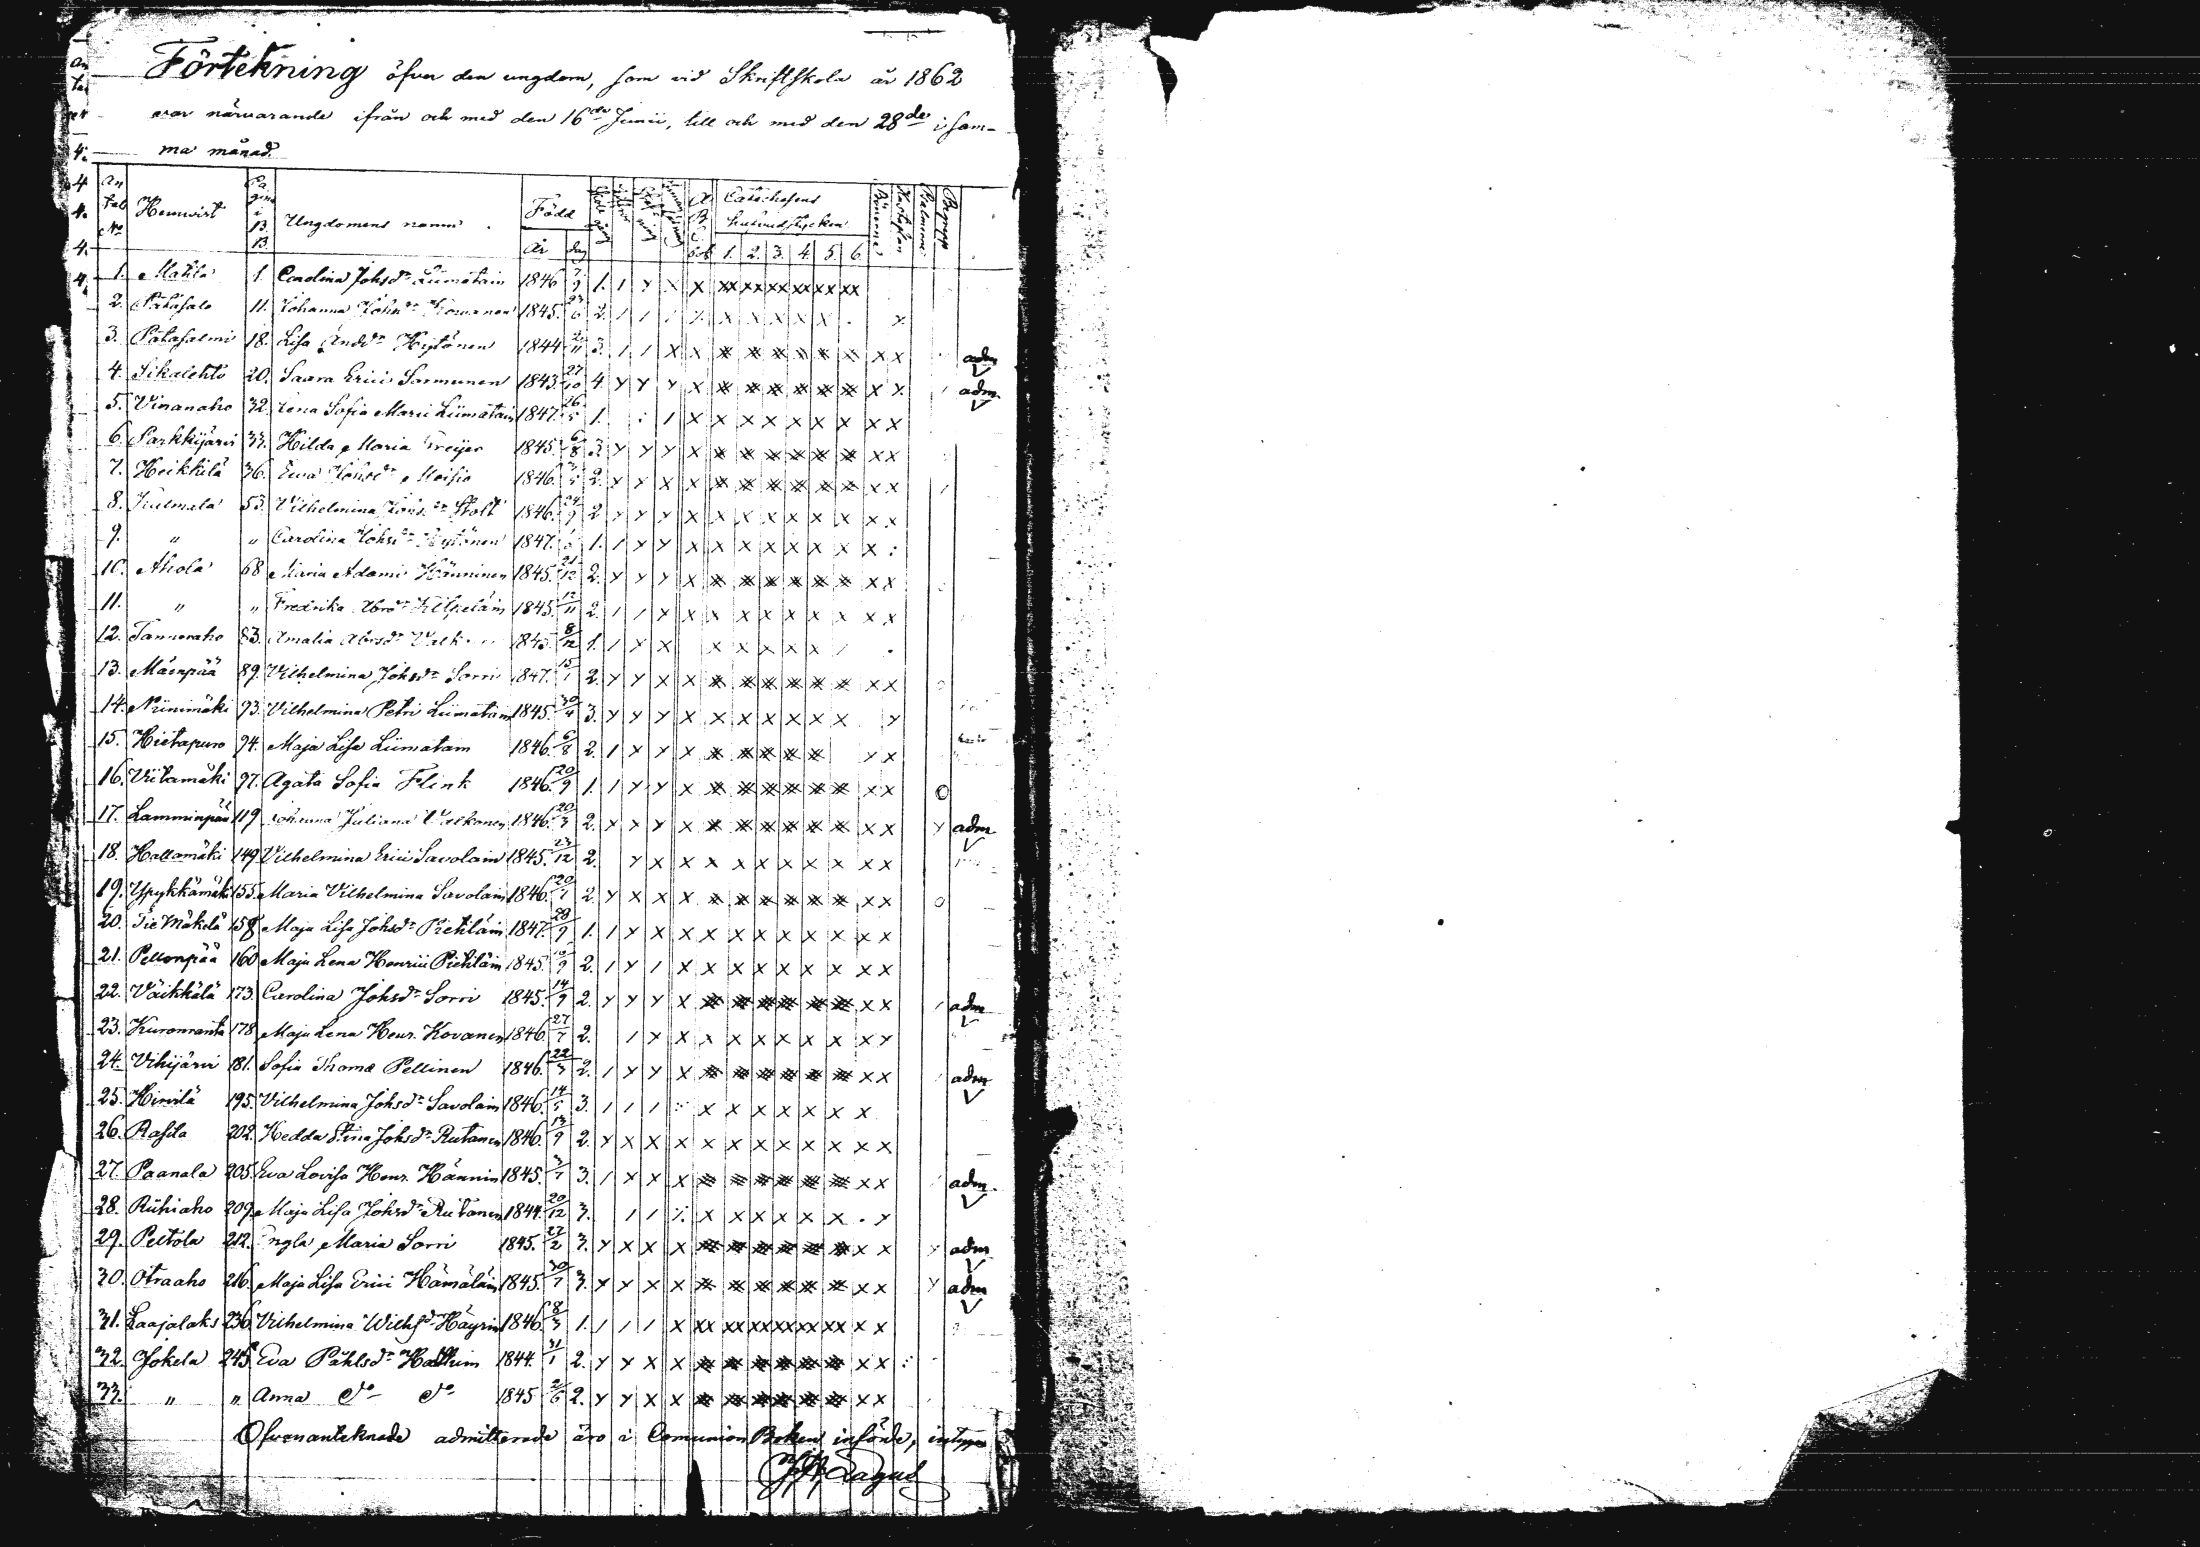 Förtekning öfver den ungdom, som vid Skriftskola år 1862
var närvarande ifrån och med den 16de Junii, till och med den 28de i sam-
ma månad.
An tal No Hemvist Pagina i B.B. Ungdomens namn Född År dag A B C bok Catechesens hufvudstycken 1. 2. 3. 4. 5. 6. Bönerna Hustaflan Psalmerna Begrepp
1. Mahla 1. Carolina Johsdr Liimatain 1846 7/9 1.
2. Pätäsalo 11. Johanna Johsdr 1845. 23/6 2.
3. Pätäsalmi 18. Lisa Anddr Hytönen 1844 3. adm
4. Sikalehto 20. Saara Erici Sormunen 1843. 27/10 4 adm.
5. Vinanaho 32. Lena Sofia Marii Liimatain 1847. 26/5 1.
6. Parkkijärvi 33. Hilda Maria Freijer 1845. 6/8 3.
7. Heikkilä 36. Ewa Johsdr Moisio 1846. 2.
8. Kulmala 53. Vilhelmina Johsdr Stolt 1846. 24/9 2
9. " " Carolina Johsdr Hytönen 1847. 1.
10. Ahola 68 Maria Adami Hänninen 1845. 21/12 2.
11. " " Fredrika Abrdr Kilpeläin 1845. 12/11 2.
12. Tanneraho 83. Amalia Abrsdr 1845. 8/12 1.
13. Mäenpää 89. Vilhelmina Johsdr Sorri 1847. 15/1 2.
14. Niinimäki 93. Vilhelmina Petri Liimatain 1845. 30/4 3.
15. Hietapuro 94. Maja Lisa Liimatain 1846. 6/8 2.
16. Viitamäki 97. Agata Sofia Flink 1846. 20/9 1.
17. Lamminpää 119 Johanna Juliana Valkonen 1846. 20/3 2. adm
18. Hallamäki 149 Vilhelmina Erici Savolain 1845. 23/12 2.
19. Ypykkämäki 155. Maria Vilhelmina Savolain 1846. 20/1 2.
20. Tie Mäkelä 158 Maja Lisa Johsdr Piehläin 1847. 28/9 1.
21. Pellonpää 160 Maja Lena Henrici Piehläin 1845. 2.
22. Väikkälä 173. Carolina Johsdr Sorri 1845. 14/9 2. adm
23. Kuronranta 178 Maja Lena Henr. Kovanen 1846. 27/7 2.
24. Vihijärvi 181. Sofia Thomæ Pellinen 1846. 22/3 2. adm
25. Hirvilä 195. Vilhelmina Johsdr Savolain 1846. 14/5 3.
26. Rasila 202. Hedda Stina Johsdr Rutanen 1846. 13/9 2.
27. Paanala 205. Eva Lovisa Henr. Hännin 1845. 3/7 3. adm.
28. Riihiaho 209. Maja Lisa Johsdr Rutanen 1844. 20/12 3.
29. Peltola 212. Engla Maria Sorri 1845. 22/2 3. adm
30. Otraaho 216. Maja Lisa Erici Hämäläin 1845. 30/7 3. adm
31. Laajalaks 236 Vilhelmina Wilhsdr Häyrin 1846. 8/3 1.
32. Jokela 245 Eva Påhlsdr 1844. 31/1 2.
33. " " Anna do do 1845 2/6 2.
Ofvanantecknade admitterade äro i Comunion Boken införde, intygar
Lagus